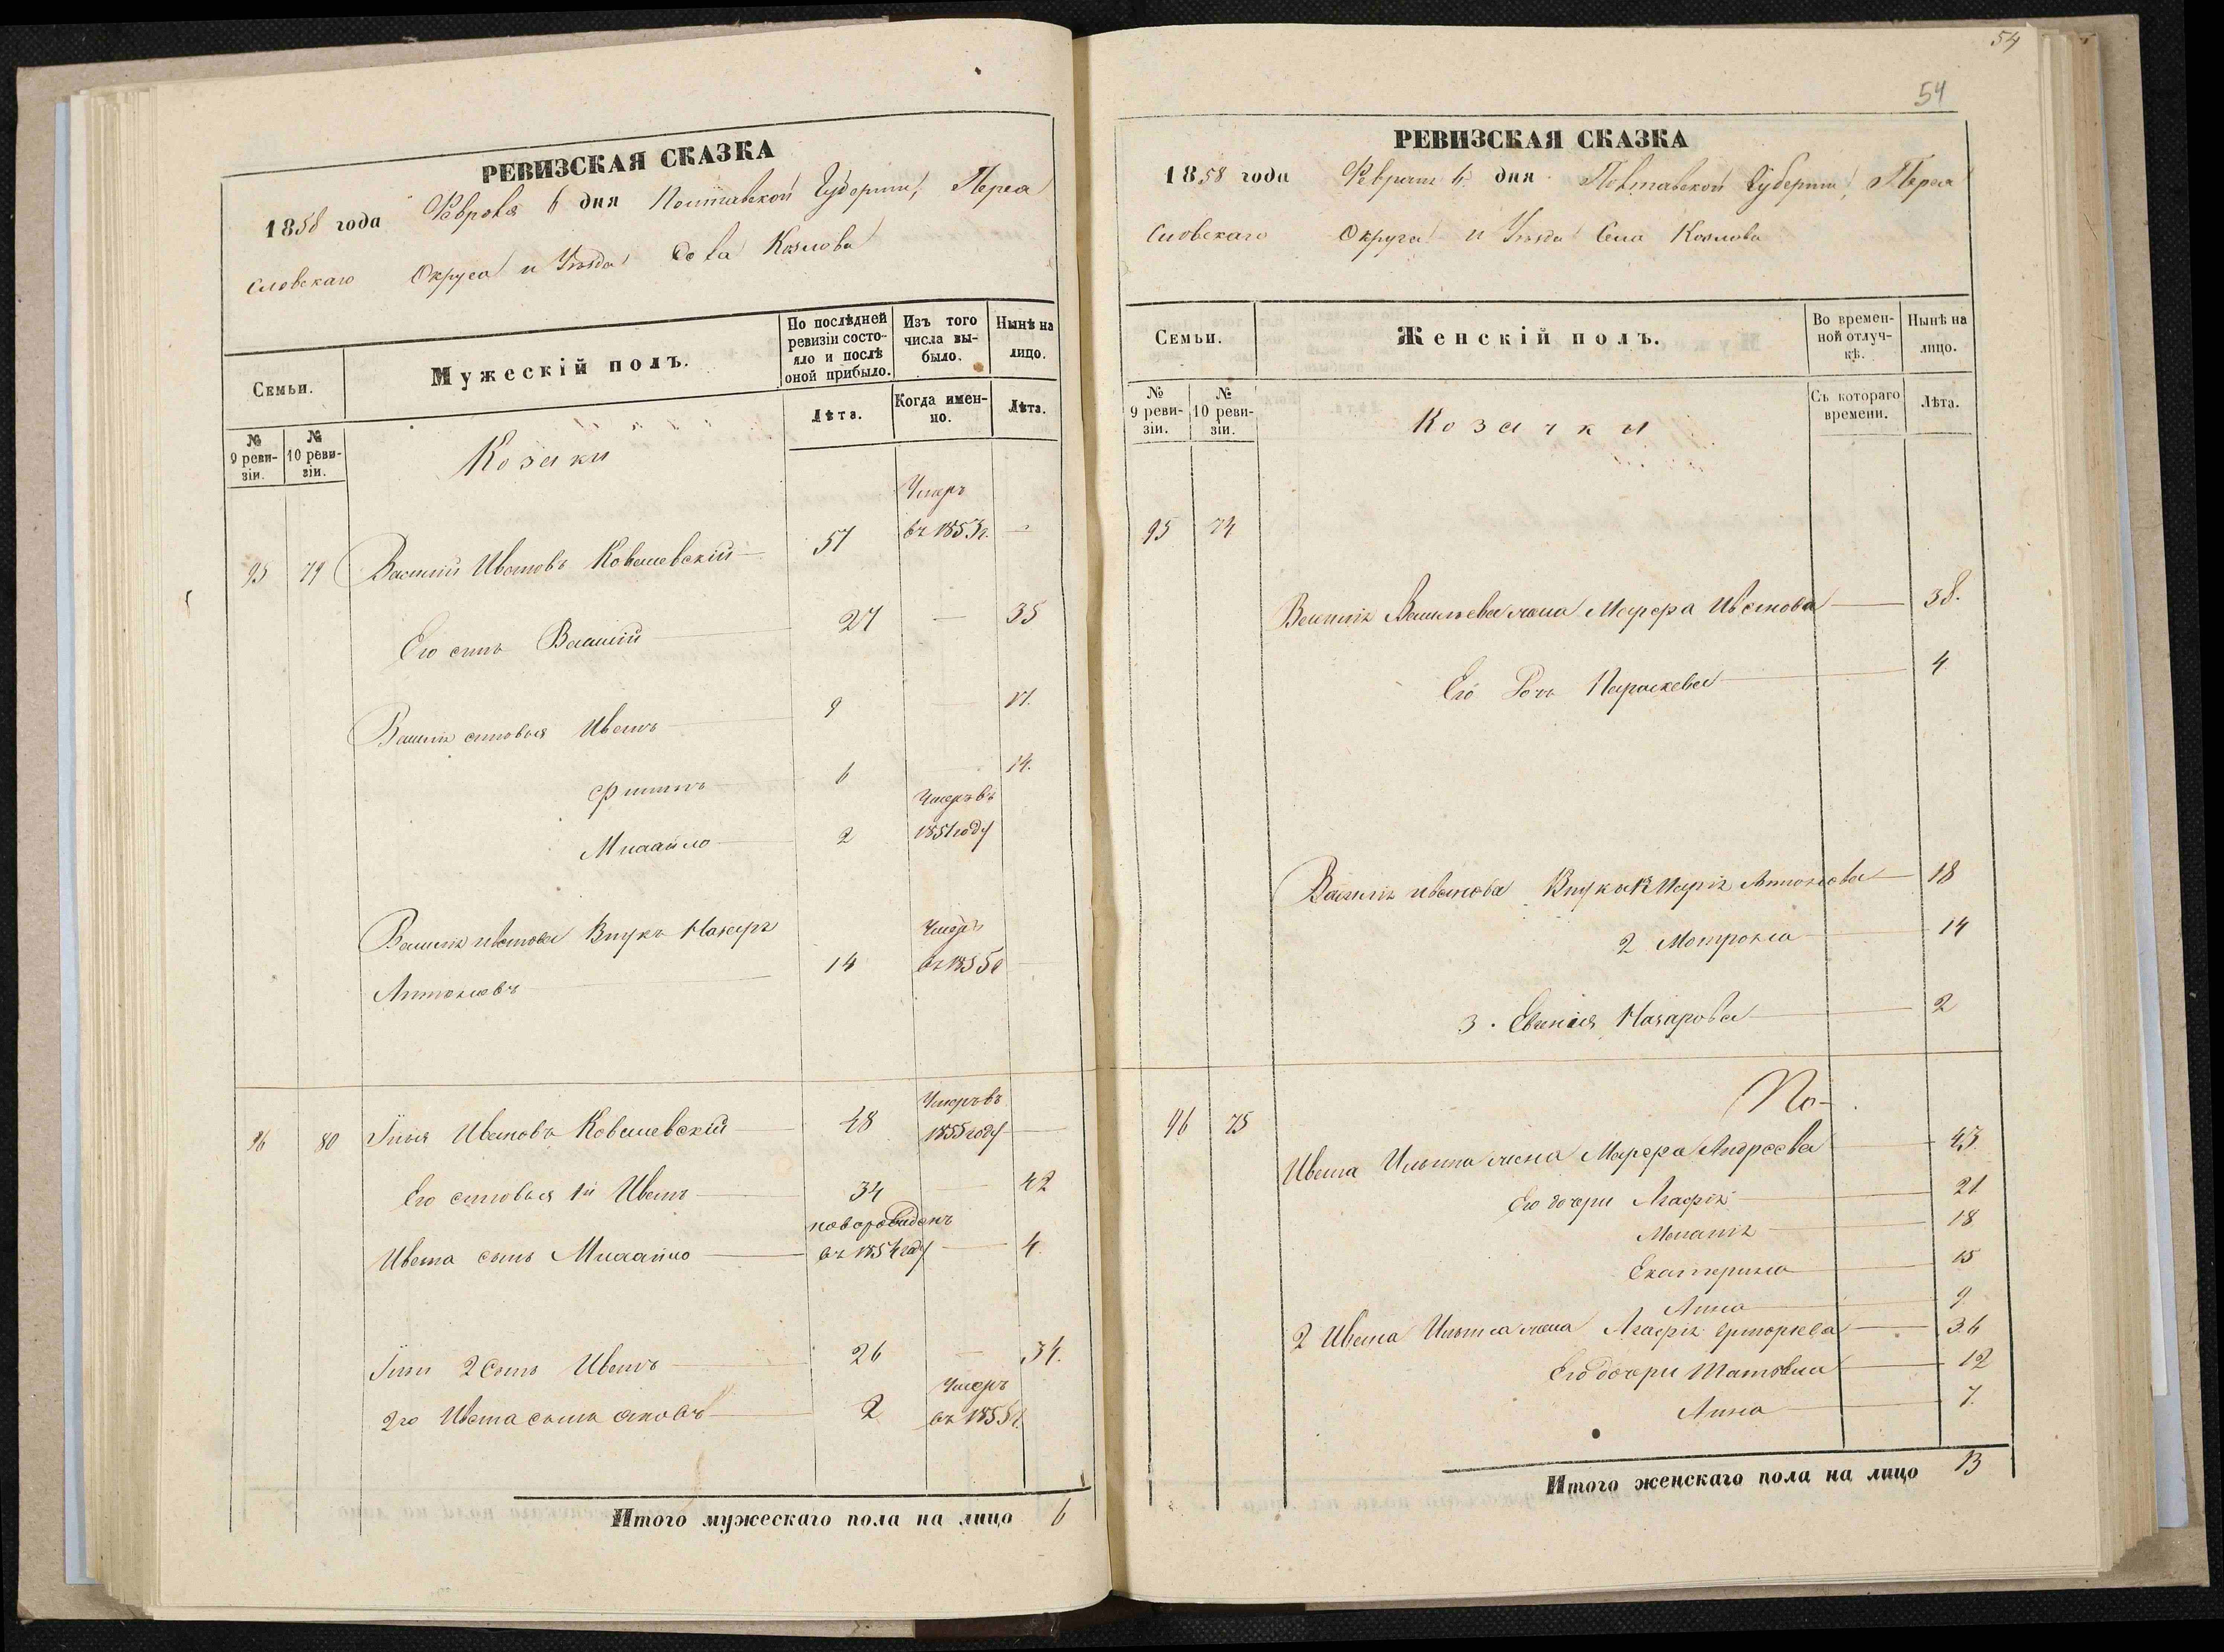 РЕВИЗСКАЯ СКАЗКА
1858 года Февраля 6 дня Полтавской Губернии, Переа
словскаго Округа и Уѣзда Села Козлова
Семьи.
Мужескій полъ.
По послѣдней ревизіи состояло и послѣ оной прибыло.
Изъ того числа выбыло.
Нынѣ на лицо.
№ 9 ревизіи.
№ 10 ревизіи.
Лѣта.
Когда именно.
Лѣта.
Козаки
Умеръ
95 79 Василій Ивановъ Ковалевскій 57 въ 1853г. —
Его сынъ Василій 27 — 35
Василія сыновья Иванъ 9 17.
Филипъ 6 14.
Умеръ въ
Михайло 2 1851 году
Василія Иванова Внукъ Назаръ Умеръ
Антоновъ 14 въ 1855г
Умеръ въ
96 80 Илья Ивановъ Ковалевскій 48 1855 году
Его сыновья 1й Иванъ 34 42
новорожденъ
Ивана сынъ Михайло въ 1854 году 4.
Ильи 2 сынъ Иванъ 26 — 34.
Умеръ
2го Ивана сынъ 2 въ 1855г.
Итого мужескаго пола на лицо 6
54
54
РЕВИЗСКАЯ СКАЗКА
1858 года Февраля 6 дня Полтавской Губернии, Переа
словскаго Округа и Уѣзда Села Козлова
Семьи.
Женскій полъ.
Во временной отлучкѣ.
Нынѣ на лицо.
№ 9 ревизіи.
№ 10 ревизіи.
Съ котораго времени.
Лѣта.
Козачки
95 74
Василія Васильева жена Марфа Иванова 38.
Его Дочь Параскева 4
Василія Иванова Внуки Марія Антонова 18
2 Мотрона 14
3. Назарова 2
96 75
Ивана Ильина жена Марфа Андреева 43.
Его дочери Агафія 21
Меланія 18
Екатерина 15
Анна 9
2 Ивана Ильина жена Агафія Григорьева 36
Его дочери Татьяна 12
Анна 7.
Итого женскаго пола на лицо 13